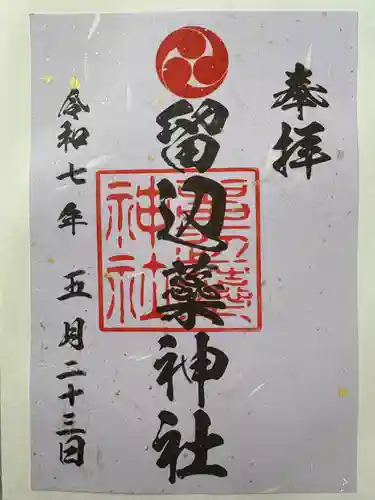 奉拝
留辺蘂神社
令和七年五月二十三日
神社